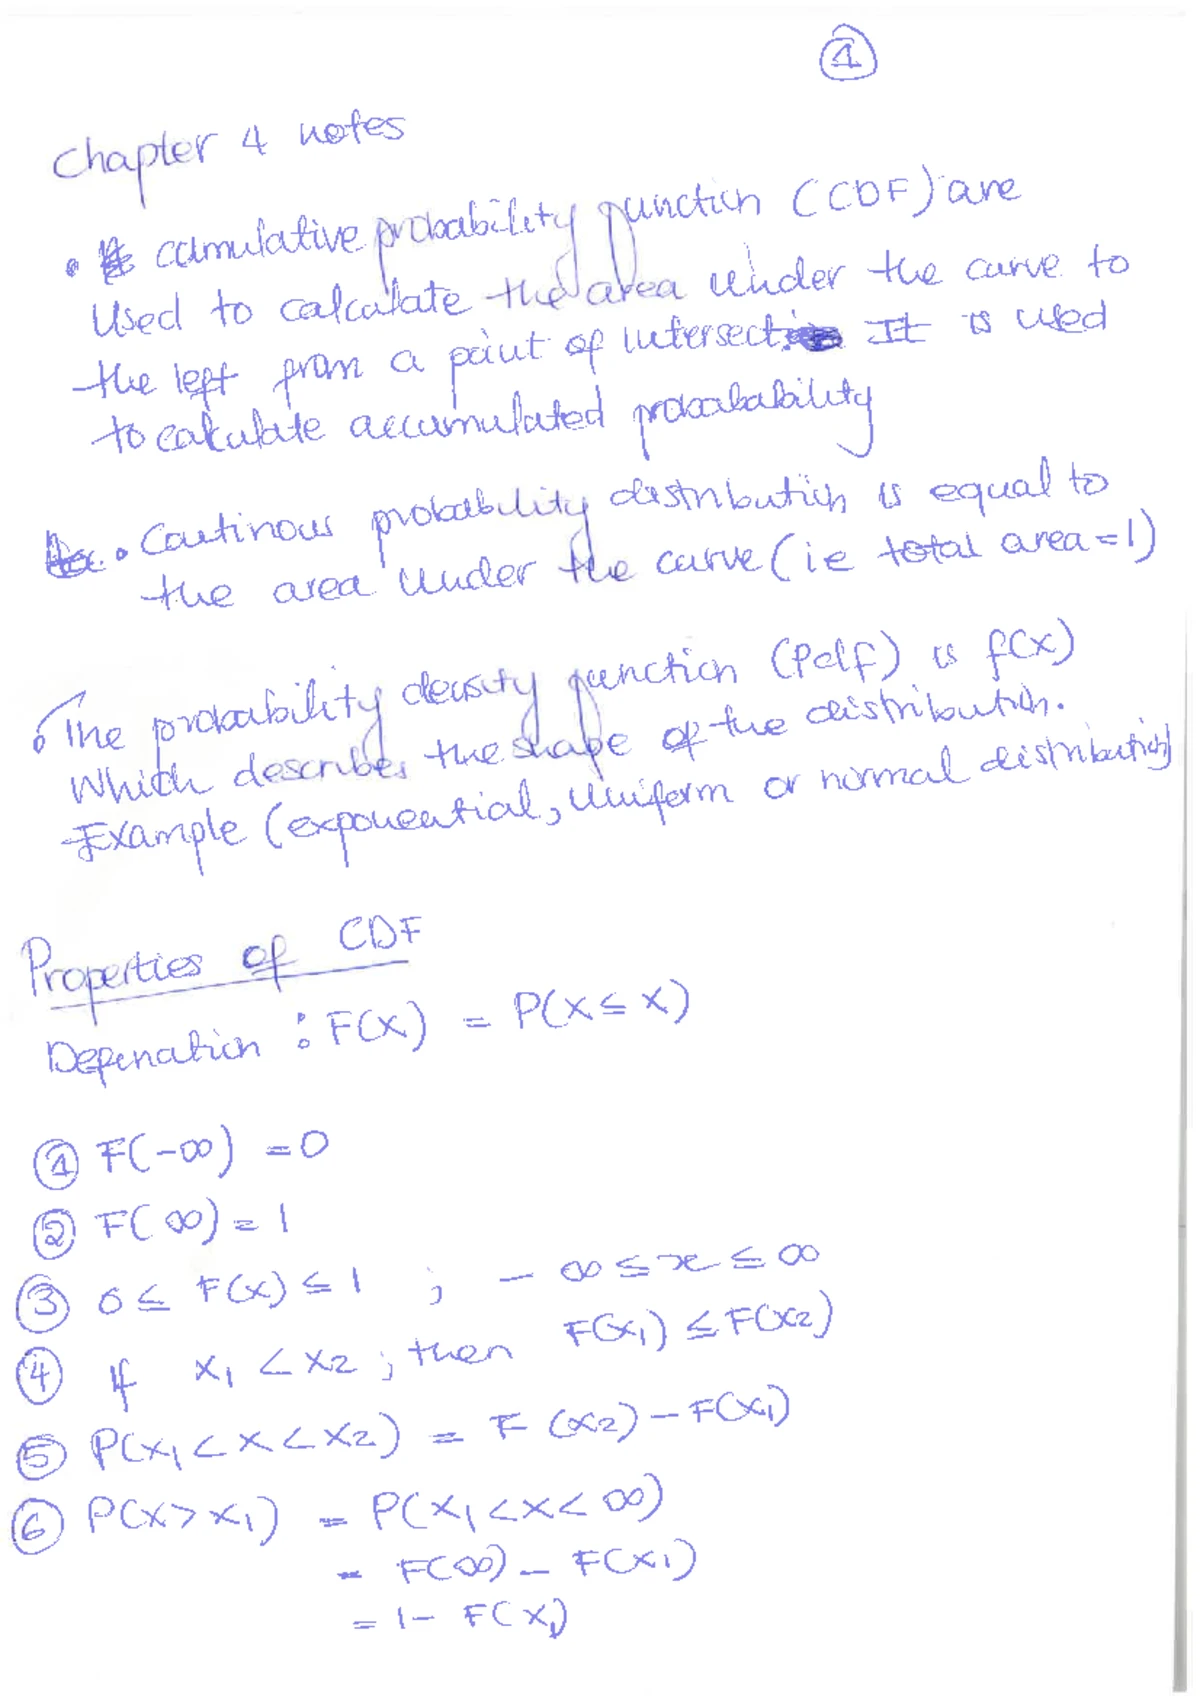 1
Chapter 4 notes
• cumulative probability function (CDF) are
Used to calculate the area under the curve to
the left from a point of intersect. It is used
to calculate accumulated probabability
• Continous probability distribution is equal to
the area under the curve (ie total area=1)
• The probability density function (Pdf) is f(x)
Which describes the shape of the distribution.
Example (exponential, Uniform or normal distribution)
Properties of CDF
Defenation : F(x) = P(X ≤ x)
① F(-∞) = 0
② F(∞) = 1
③ 0 ≤ F(x) ≤ 1 ; -∞ ≤ x ≤ ∞
④ If x₁ < x₂ ; then F(x₁) ≤ F(x₂)
⑤ P(x₁ < x < x₂) = F(x₂) - F(x₁)
⑥ P(x > x₁) = P(x₁ < x < ∞)
= F(∞) - F(x₁)
= 1 - F(x₁)